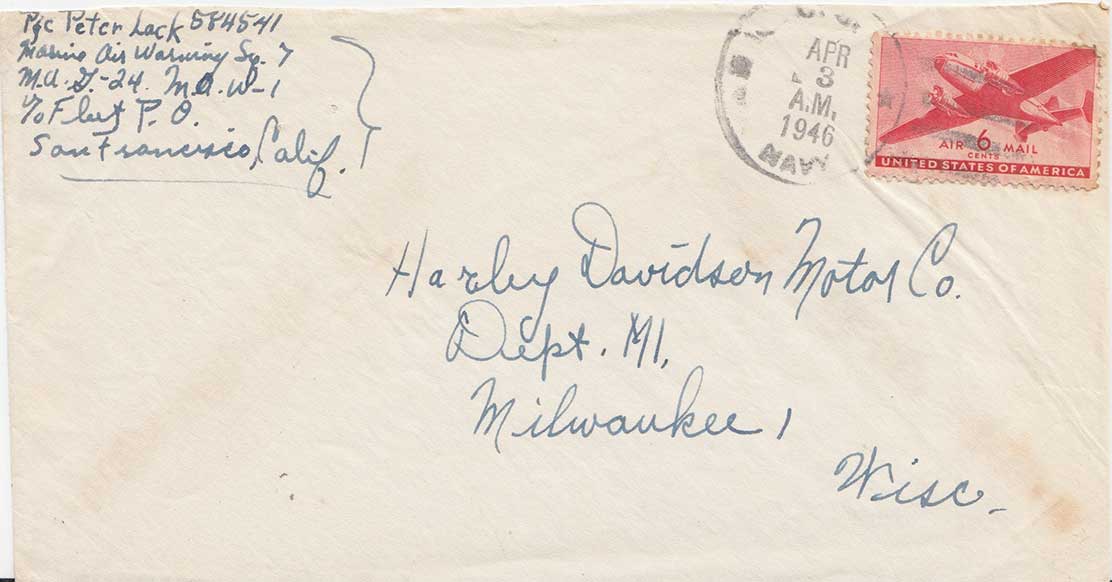 Pfc Peter Lack 584541
Marine Air Warning Sq. 7
M.A.G-24. M.A.W-1
c/o Fleet P.O.
San Francisco, Calif.
APR
3
A.M.
1946
NAVY
AIR 6 MAIL
CENTS
UNITED STATES OF AMERICA
Harley Davidson Motor Co.
Dept. M1,
Milwaukee 1
Wisc.